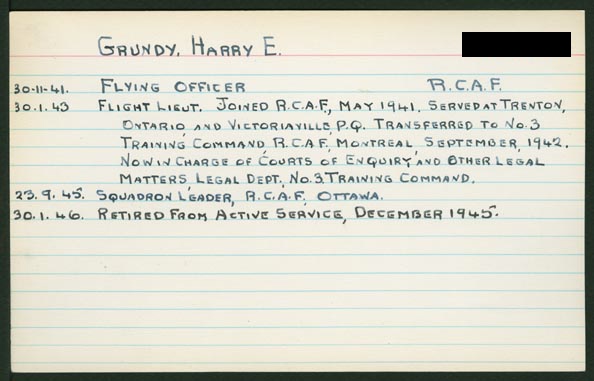 GRUNDY, HARRY E.
30-11-41. FLYING OFFICER R.C.A.F.
30.1.43 FLIGHT LIEUT. JOINED R.C.A.F., MAY 1941. SERVED AT TRENTON,
ONTARIO, AND VICTORIAVILLE, P.Q. TRANSFERRED TO NO.3
TRAINING COMMAND, R.C.A.F. MONTREAL, SEPTEMBER, 1942.
NOW IN CHARGE OF COURTS OF ENQUIRY AND OTHER LEGAL
MATTERS, LEGAL DEPT., NO.3 TRAINING COMMAND.
23.9.45. SQUADRON LEADER, R.C.A.F. OTTAWA.
30.1.46. RETIRED FROM ACTIVE SERVICE, DECEMBER 1945.